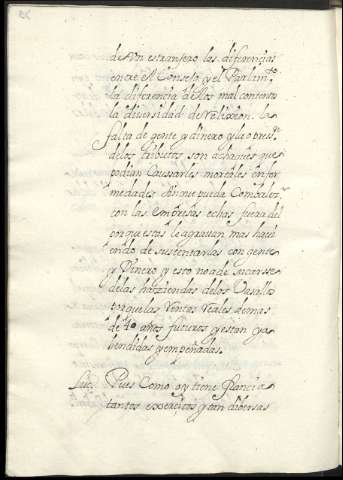 de Un estranjero las diferencias
entre el Consejo y el Parlam.to
la diferencia de los mal contentos
la diversidad de religion. la
falta de gente y dinero y la opres.n
de los tributos son achaques que
podian Caussarles mortales enfer
medades sin que pueda Combalez.r
con las Empresas echas fuera del
porque estas le agravan mas havi
endo de sustentarlas con gente
y Dinero y esto no a de sacarse
de las haziendas de los Vasallos
porque las Rentas Reales de mas
de 40 años futuros y estan ya
bendidas y empeñadas.
Luc. Pues Como oy tiene françia
tantos exercitos y tan diversas